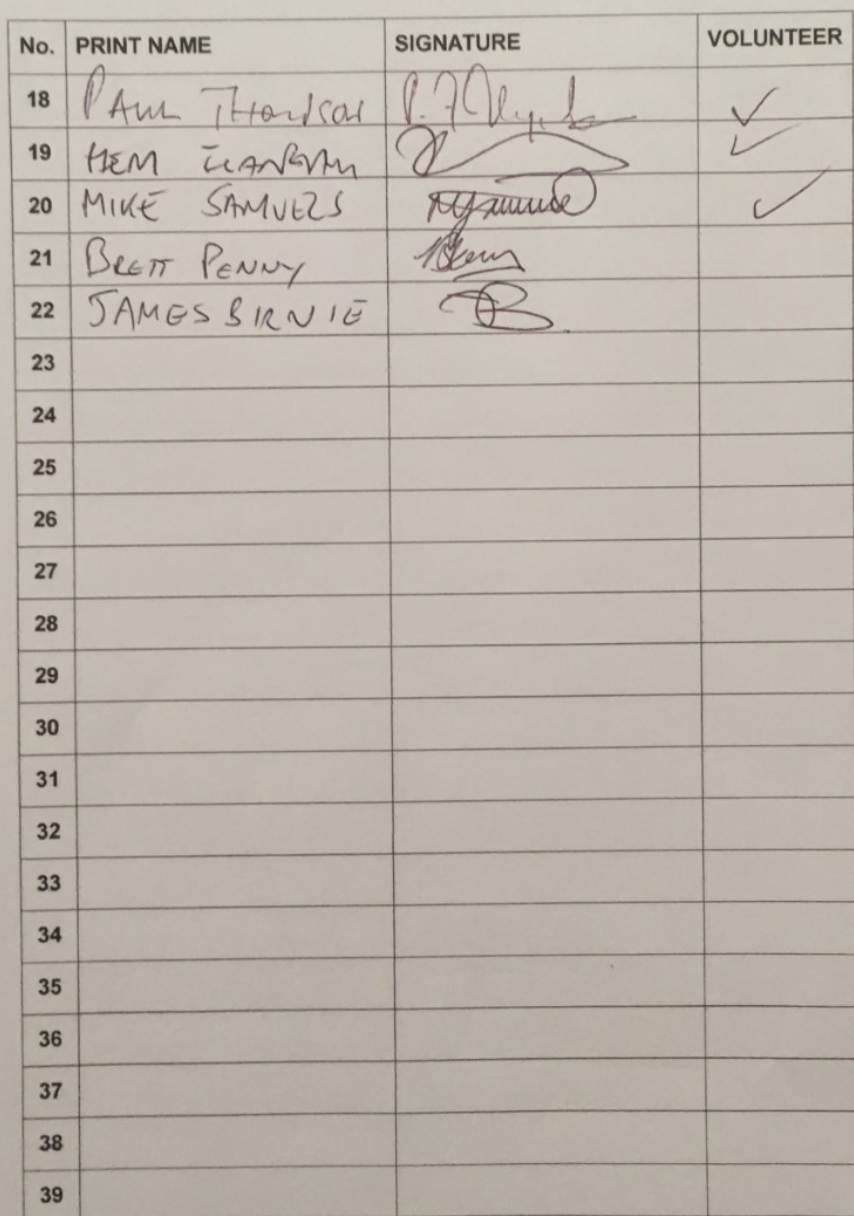 No. PRINT NAME SIGNATURE VOLUNTEER
18 PAUL
19 HEM
20 MIKE SAMUELS
21 BRETT PENNY
22 JAMES BIRNIE
23
24
25
26
27
28
29
30
31
32
33
34
35
36
37
38
39